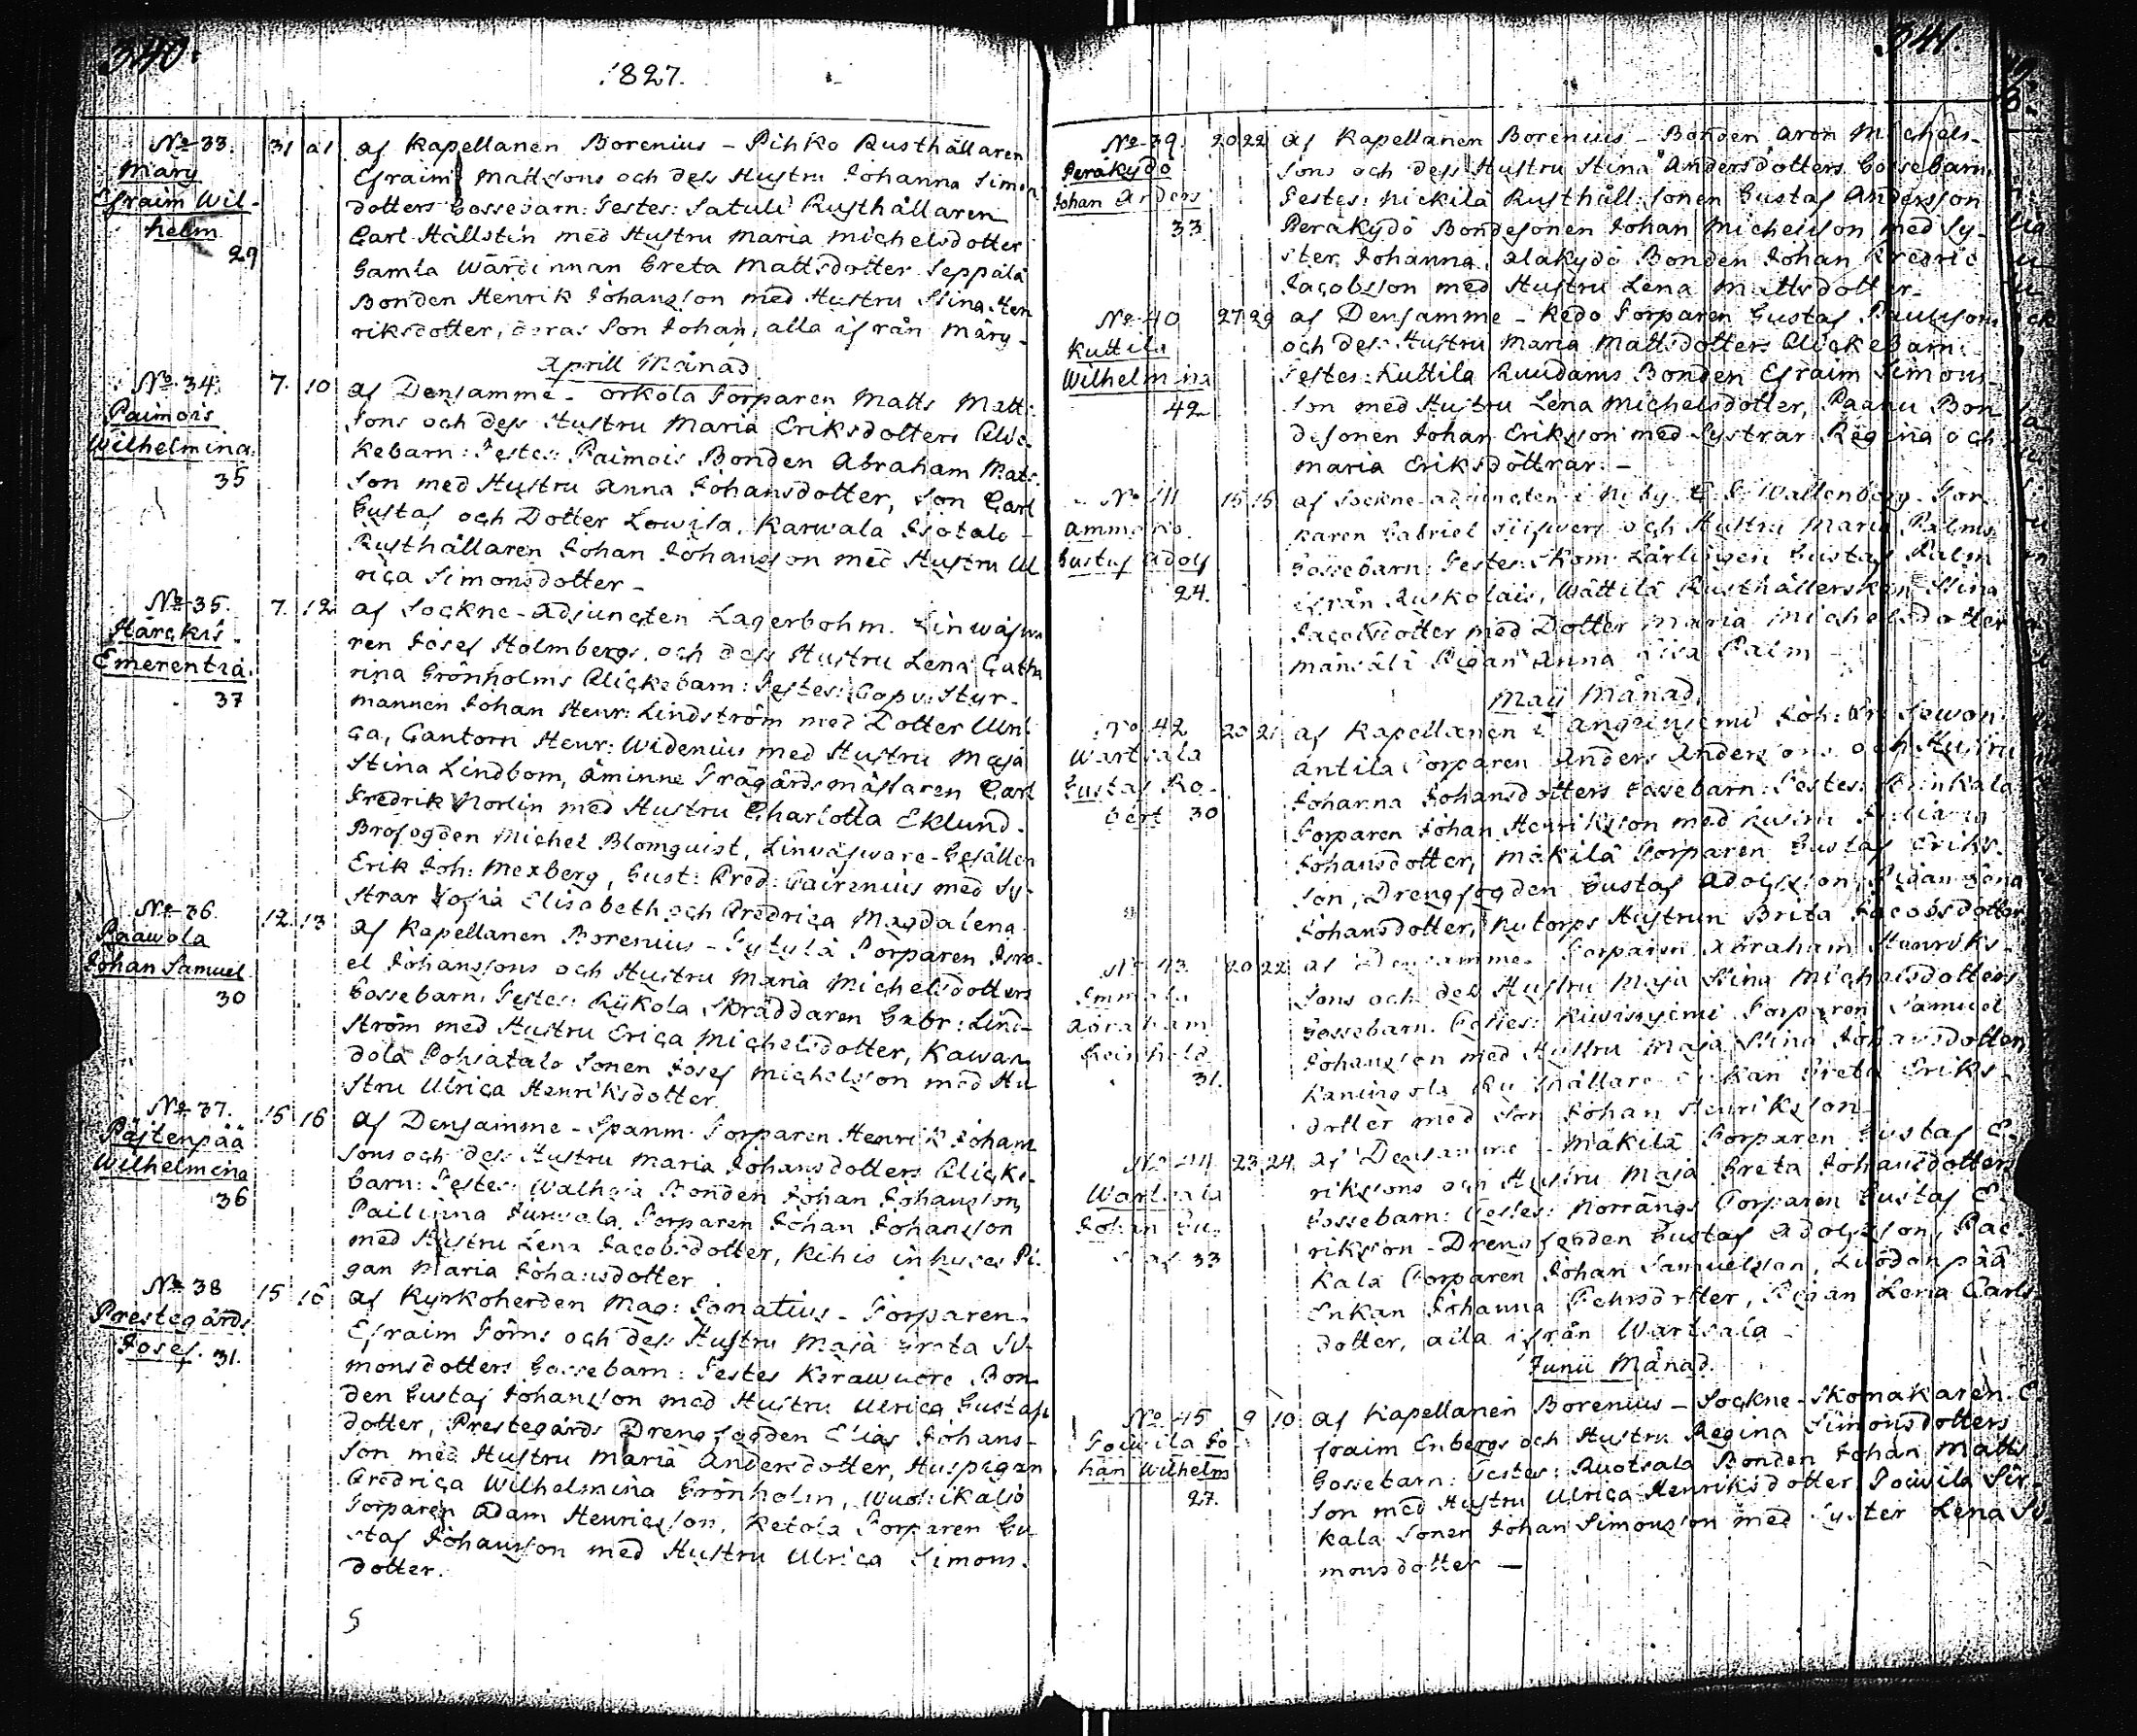 340.
1827.
No 33. 31 a1 af Kapellanen Borenius - Pihko Rusthållaren
Märy Efraim Mattsons och dess Hustru Johanna Simon
Efraim Wil- dotters Gossebarn: Testes: Satuli Rusthållaren
helm Carl Hällstin med Hustru Maria Michelsdotter
29 Gamla Wärdinnan Greta Mattsdotter Seppälä
Bonden Henrik Johansson med Hustru Stina Hen
riksdotter, deras Son Johan, alla ifrån Märy -
Aprill Månad
No 34. 7. 10 af Densamme - Orkola Torparen Matts Matt:
Paimois sons och dess Hustru Maria Eriksdotters Flic-
Wilhelmina. kebarn: Testes: Paimois Bonden Abraham Mats
35 son med Hustru Anna Johansdotter, Son Carl
Gustaf och Dotter Lowisa, Karwala Isotalo -
Rusthållaren Johan Johansson med Hustru Ul
rica Simonsdotter -
No 35. 7. 12. af Sockne-Adjuncten Lagerbohm. Linwäfwa
Härckis. ren Josef Holmbergs och dess Hustru Lena Catha
Emerentia. rina Grönholms Flickebarn: Testes: Copv: Styr-
37 mannen Johan Henr: Lindström med Dotter Ulri
ca, Cantorn Henr: Widenius med Hustru Maja
Stina Lindbom, Åminne Trägårdsmästaren Carl
Fredrik Norlin med Hustru Charlotta Eklund.
Brofogden Michel Blomquist, Linwäfware-Gesällen
Erik Joh: Mexberg, Gust: Fred: Cairenius med Sy-
strar Sofia Elisabeth och Fredrica Magdalena.
No 36. 12. 13 af Kapellanen Borenius - Tytylä Torparen Isra-
Paawola el Johanssons och Hustru Maria Michelsdotters
Johan Samuel Gossebarn: Testes: Rykola Skräddaren Gabr: Lind-
30 ström med Hustru Erica Michelsdotter, Kawan
dola Pohiatalo Sonen Josef Michelsson med Hu
stru Ulrica Henriksdotter.
No 37. 15 16 af Densamme - Spanm. Torparen Henrik Johan
Päjtenpää sons och dess Hustru Maria Johansdotters Flicke-
Wilhelmina barn: Testes: Walhoja Bonden Johan Johansson,
36 Pailinna Junnala Torparen Johan Johansson
med Hustru Lena Jacobsdotter, Kihis inhuses Pi-
gan Maria Johansdotter
No 38 15 16 af Kyrkoherden Mag: Ignatius - Torparen
Prestegårds Efraim Törns och dess Hustru Maja Greta Si-
Josef. 31. monsdotters Gossebarn: Testes Kärawuore Bon
den Gustaf Johansson med Hustru Ulrica Gustafs
dotter, Prestegårds Drengfogden Elias Johans-
son med Hustru Maria Andersdotter, Huspigan
Fredrica Wilhelmina Grönholm, Wuohikallio
Torparen Adam Henricsson, Ketola Torparen Gu
staf Johansson med Hustru Ulrica Simons-
dotter.
5
341.
No 39. 20 22 af Kapellanen Borenius - Bonden Aron Michels-
Peräkydö sons och dess Hustru Stina Andersdotters Gossebarn:
Johan Anders Testes: Nickilä Rusthåll: sonen Gustaf Andersson
33 Peräkydö Bondesonen Johan Michelsson med Sy-
ster Johanna, Alakydö Bonden Johan Fredric
Jacobsson med Hustru Lena Mattsdotter-
No 40 27 29 af Densamme - Kedo Torparen Gustaf Paulssons
Kuttila och dess Hustru Maria Mattsdotters Flickebarn:
Wilhelmina Testes: Kuttila Ruudams Bonden Efraim Simons-
42 son med Hustru Lena Michelsdotter, Paanu Bon
desonen Johan Eriksson med Systrar Regina och
Maria Eriksdöttrar. -
No 41 15 15 af Sockne-adjuncten i Wallenberg. Tor-
Ammo paren Gabriel och Hustru Maria Palms
Gustaf Adolf Gossebarn: Testes: Skom: Lärlingen Gustaf Palm
24. ifrån Ruskolais, Wättilä Rusthållerskan Stina
Jacobsdotter med Dotter Maria Michelsdotter
Pigan Anna Lisa Palm
Maij Månad.
No 42 20 21 af Kapellanen i Angelniemi Joh:
Wartsala Antila Torparen Anders Anderssons och Hustru
Gustaf Ro- Johanna Johansdotters Gossebarn: Testes:
bert 30 Torparen Johan Henriksson med Hustru
Johansdotter, Mäkilä Torparen Gustaf Eriks-
son, Drengfogden Gustaf Adolfsson, Pigan Lena
Johansdotter, Hustrun Brita Jacobsdotter
No 43 20 22 af Densamme. Torparen Abraham Henriks-
Immala sons och dess Hustru Maja Stina Michelsdotters
Abraham Gossebarn. Testes: Torparen Samuel
Reinhold Johansson med Hustru Maja Stina Johansdotter
31. Enkan Greta Eriks-
dotter med Son Johan Henriksson
No 44 23 24 af Densamme - Mäkilä Torparen Gustaf E-
Wartsala rikssons och Hustru Maja Greta Johansdotters
Johan Gu- Gossebarn: Testes: Norrängs Torparen Gustaf E-
staf 33 riksson - Drengfogden Gustaf Adolfsson,
kala Torparen Johan Samuelsson,
Enkan Johanna dotter, Pigan Lena Carls-
dotter, alla ifrån Wartsala -
Junii Månad.
No 45 9 10 af Kapellanen Borenius - Sockne-Skomakaren E-
Towila Jo- fraim Enbergs och Hustru Regina Simonsdotters
han Wilhelm Gossebarn: Testes: Ruotsala Bonden Johan Matts
27. son med Hustru Ulrica Henriksdotter Towila Sir-
kala Sonen Johan Simonsson med Syster Lena Si-
monsdotter -